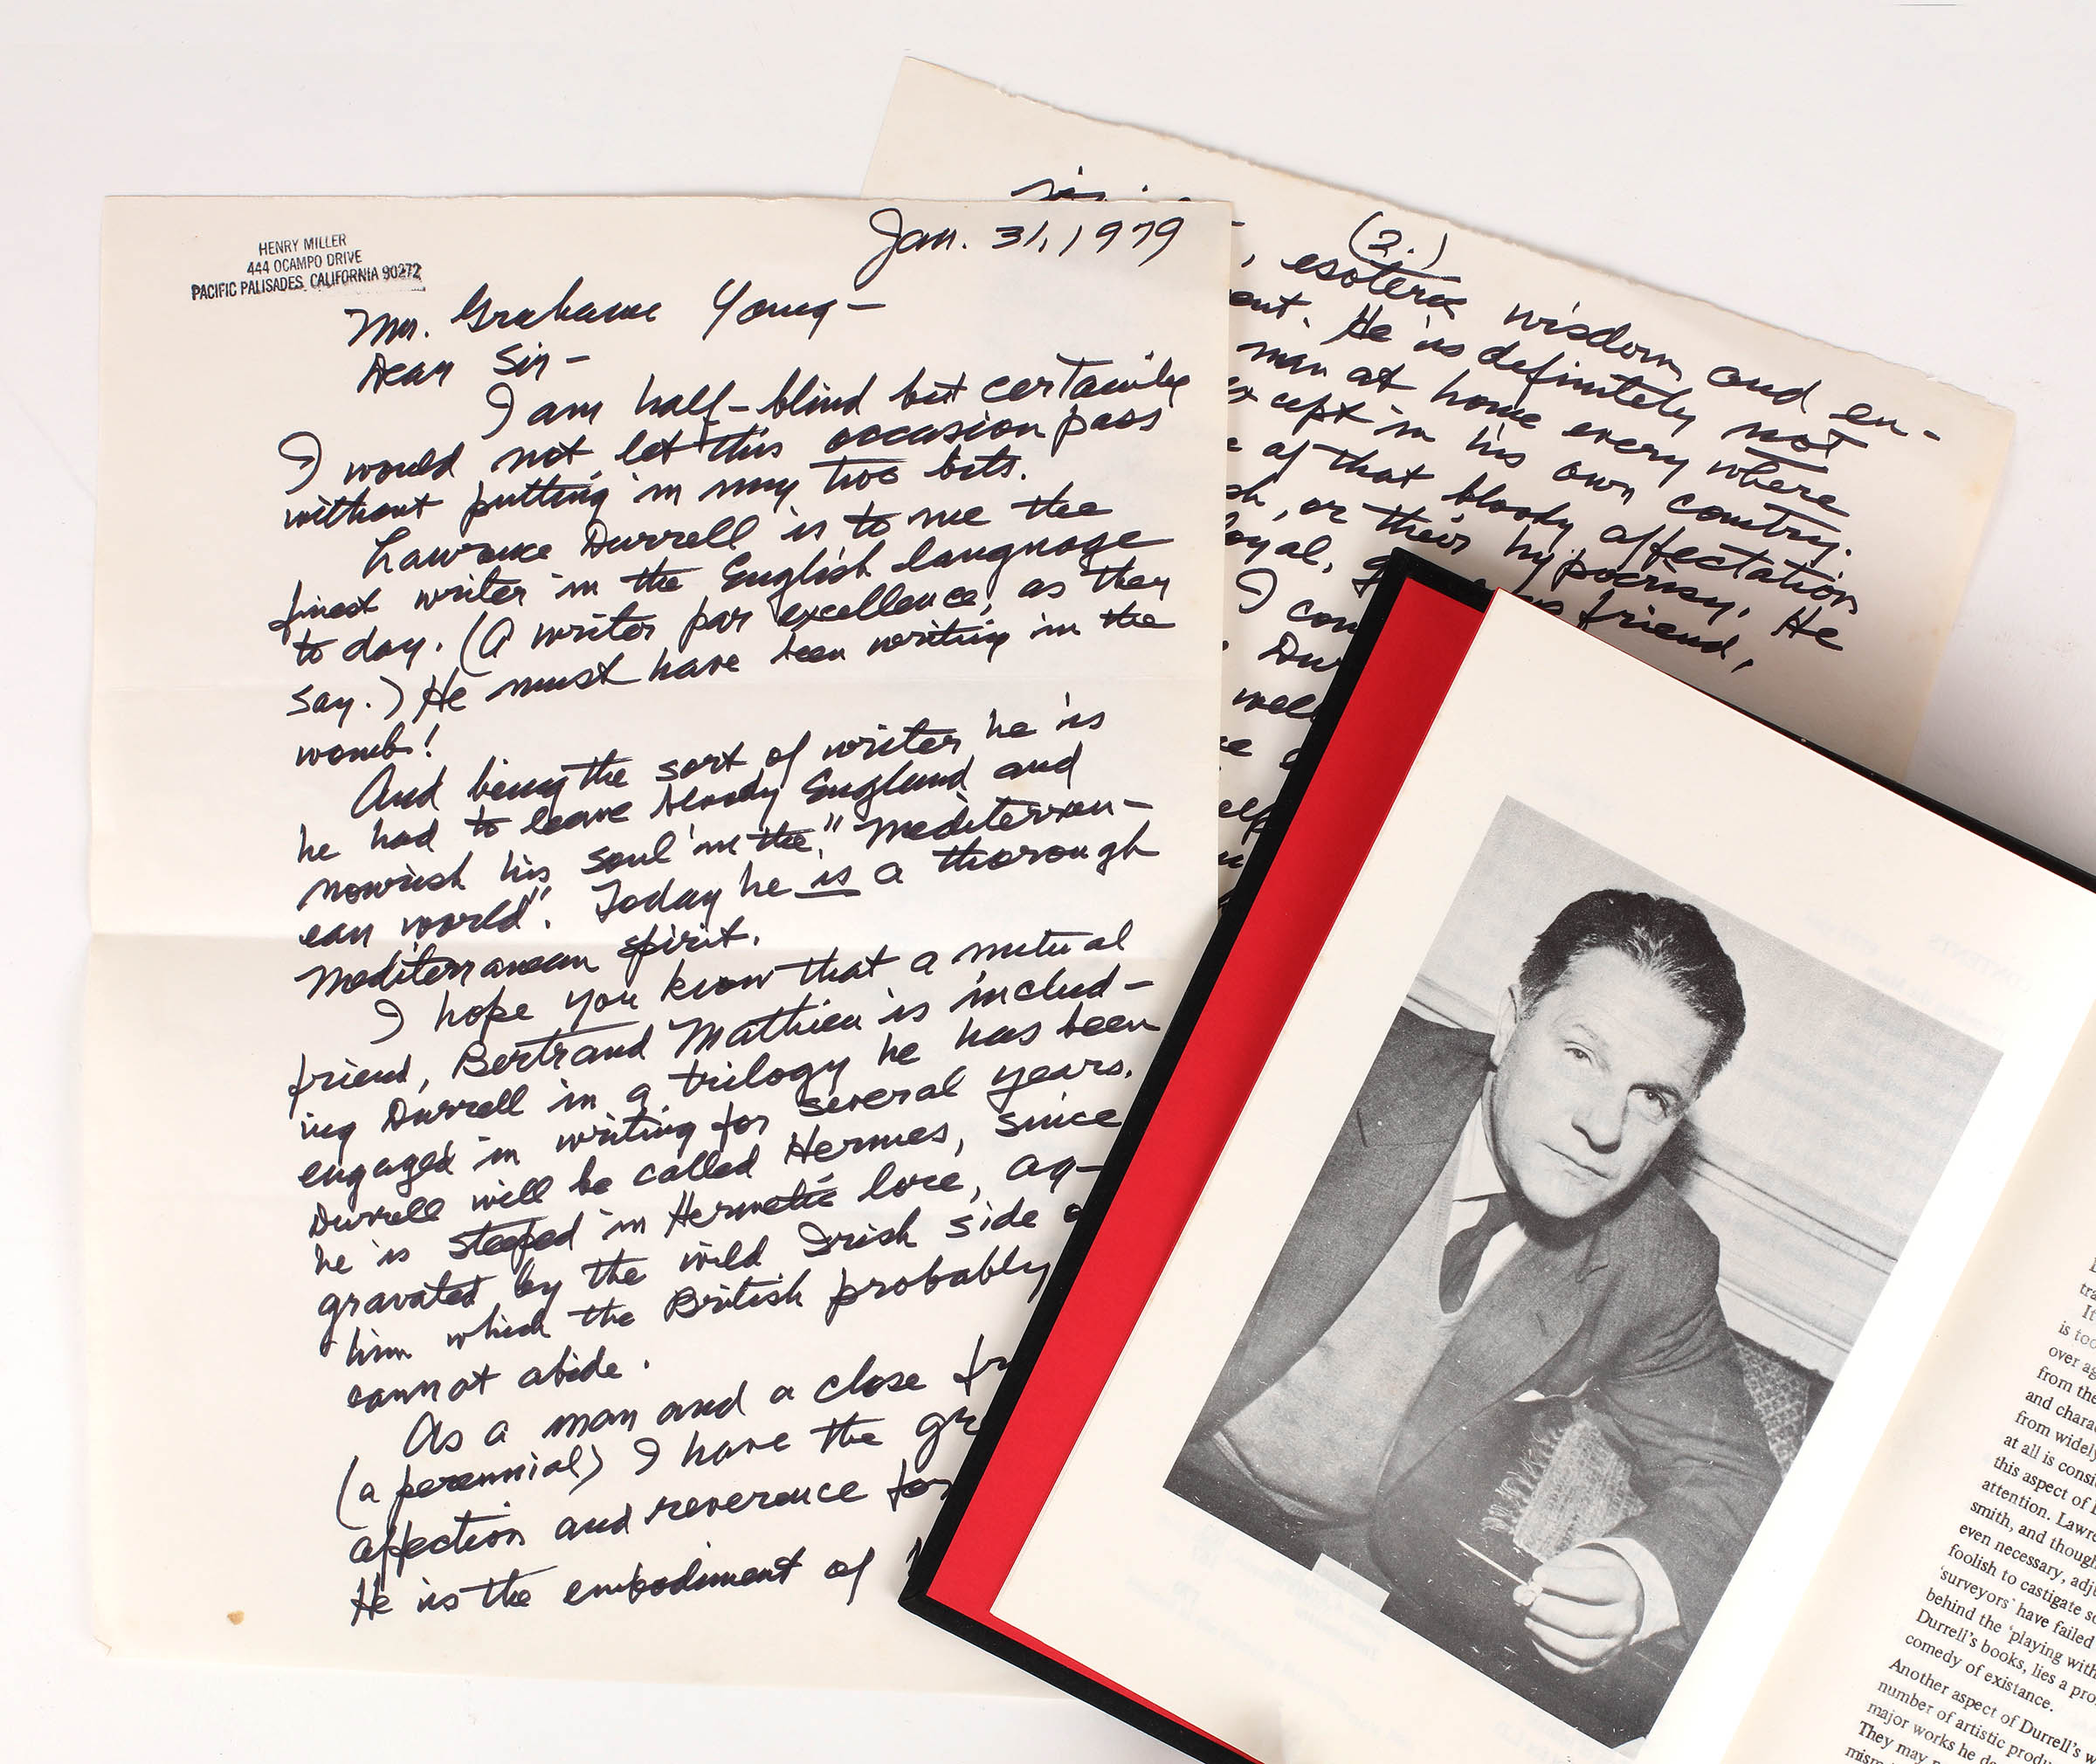 HENRY MILLER
444 OCAMPO DRIVE
PACIFIC PALISADES, CALIFORNIA 90272
Jan. 31, 1979
Mr. Grahame Young —
Dear Sir —
I am half-blind but certainly
I would not let this occasion pass
without putting in my two bits.
Lawrence Durrell is to me the
finest writer in the English language
to day. (A writer par excellence, as they
say.) He must have been writing in the
womb!
And being the sort of writer he is
he had to leave bloody England and
nourish his soul in the "Mediterran-
ean world". Today he is a thorough
Mediterranean spirit.
I hope you know that a mutual
friend, Bertrand Mathieu is includ-
ing Durrell in a trilogy he has been
engaged in writing for several years.
Durrell will be called Hermes, since
he is steeped in Hermetic lore, ag-
gravated by the wild Irish side
him which the British probably
cannot abide.
As a man and a close fr
(a perennial) I have the gr
affection and reverence for
He is the embodiment of
(2.)
, esoteric wisdom and en-
ent. He is definitely not
man at home every where
cept in his own country.
of that bloody affectation
sh, or their hypocrisy. He
loyal, g his friend,
I con
Dur
well
elf
tra
It
is too
over ag
from the
and chara
from widely
at all is consi
this aspect of
attention. Lawre
smith, and though
even necessary, adj
foolish to castigate so
'surveyors' have failed
behind the 'playing with
Durrell's books, lies a pro
comedy of existance.
Another aspect of Durrell's w
number of artistic produ
major works he de
They may
mism